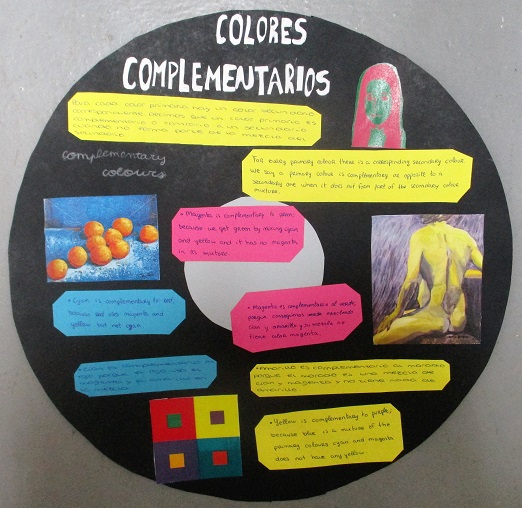 COLORES
COMPLEMENTARIOS
Para cada color primario hay un color secundario
correspondiente, decimos que un color primario es
complementario o opuesto a un secundario
cuando no forma parte de la mezcla del
secundario.
complementary
colours
For every primary colour there is a corresponding secondary colour,
we say a primary colour is complementary or opposite to a
secondary one when it does not form part of the secondary colour
mixture.
• Magenta is complementary to green,
because we get green by mixing cyan
and yellow and it has no magenta
in its mixture.
• Cyan is complementary to red,
because red uses magenta and
yellow but not cyan.
• Magenta es complementario al verde,
porque conseguimos verde mezclando
cian y amarillo y la mezcla no
tiene nada magenta.
complementario al
rojo porque el rojo
magenta y
• Amarillo es complementario al morado
porque el morado es una mezcla de
cian y magenta y no tiene nada de
amarillo.
• Yellow is complementary to purple,
because blue is a mixture of the
primary colours cyan and magenta
does not have any yellow.